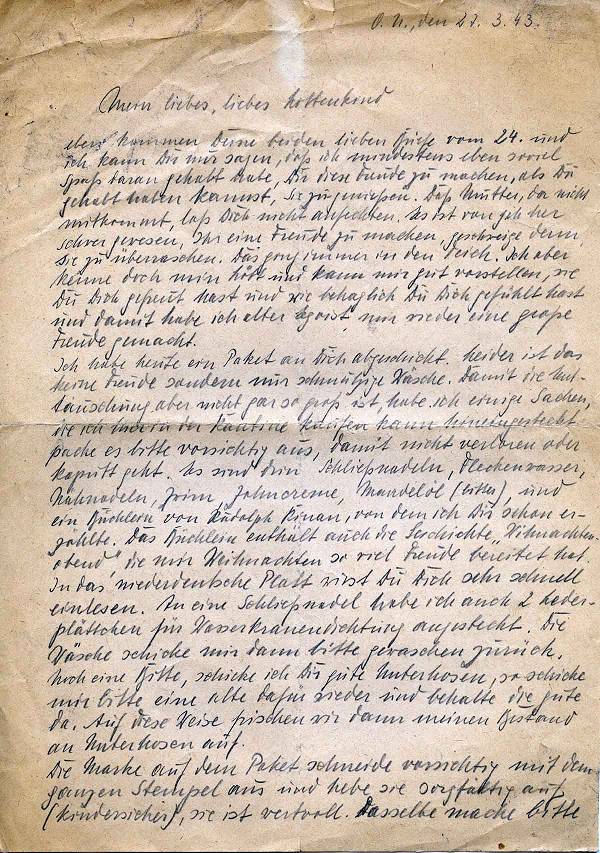 O. U., den 27. 3. 43.
Mein liebes, liebes Lottenkind
eben kommen Deine beiden lieben Briefe vom 24. und
ich kann Dir nur sagen, daß ich mindestens eben soviel
Spaß daran gehabt habe, Dir diese Freude zu machen, als Du
gehabt haben kannst, sie zu genießen. Daß Mutter, da nicht
mitkommt, laß Dich nicht anfechten. Es ist von jeh her
schwer gewesen, Ihr eine Freude zu machen, geschweige denn,
sie zu überraschen. Das ging immer in den Teich. Ich aber
kenne doch mein Lott und kann mir gut vorstellen, wie
Du Dich gefreut hast und wie behaglich Du Dich gefühlt hast
und damit habe ich alter Egoist, mir wieder eine große
Freude gemacht.
Ich habe heute ein Paket an Dich abgeschickt. Leider ist das
keine Freude sondern nur schmutzige Wäsche. Damit die Ent-
täuschung aber nicht gar so groß ist, habe ich einige Sachen,
die ich in der Kantine kaufen kann hineingesteckt
packe es bitte vorsichtig aus, damit nicht verloren oder
kaputt geht. Es sind drin Schließnadeln, Fleckenwasser,
Nähnadeln, Zwirn, Zahncreme, Mandelöl (bitter) und
ein Büchlein von Rudolph Kinau, von dem ich Dir schon er-
zählte. Das Büchlein enthält auch die Geschichte „Wihnachten-
obend", die mir Weihnachten so viel Freude bereitet hat.
In das niederdeutsche Platt wirst Du Dich sehr schnell
einlesen. An eine Schließnadel habe ich auch 2 Leder-
plättchen für Wasserkranendichtung angesteckt. Die
Wäsche schicke mir dann bitte gewaschen zurück.
Noch eine Bitte, schicke ich Dir gute Unterhosen, so schicke
mir bitte eine alte dafür wieder und behalte die gute
da. Auf diese Weise frischen wir dann meinen Bestand
an Unterhosen auf.
Die Marke auf dem Paket schneide vorsichtig mit dem
ganzen Stempel aus und hebe sie sorgfältig auf
(kindersicher), sie ist wertvoll. Dasselbe mache bitte